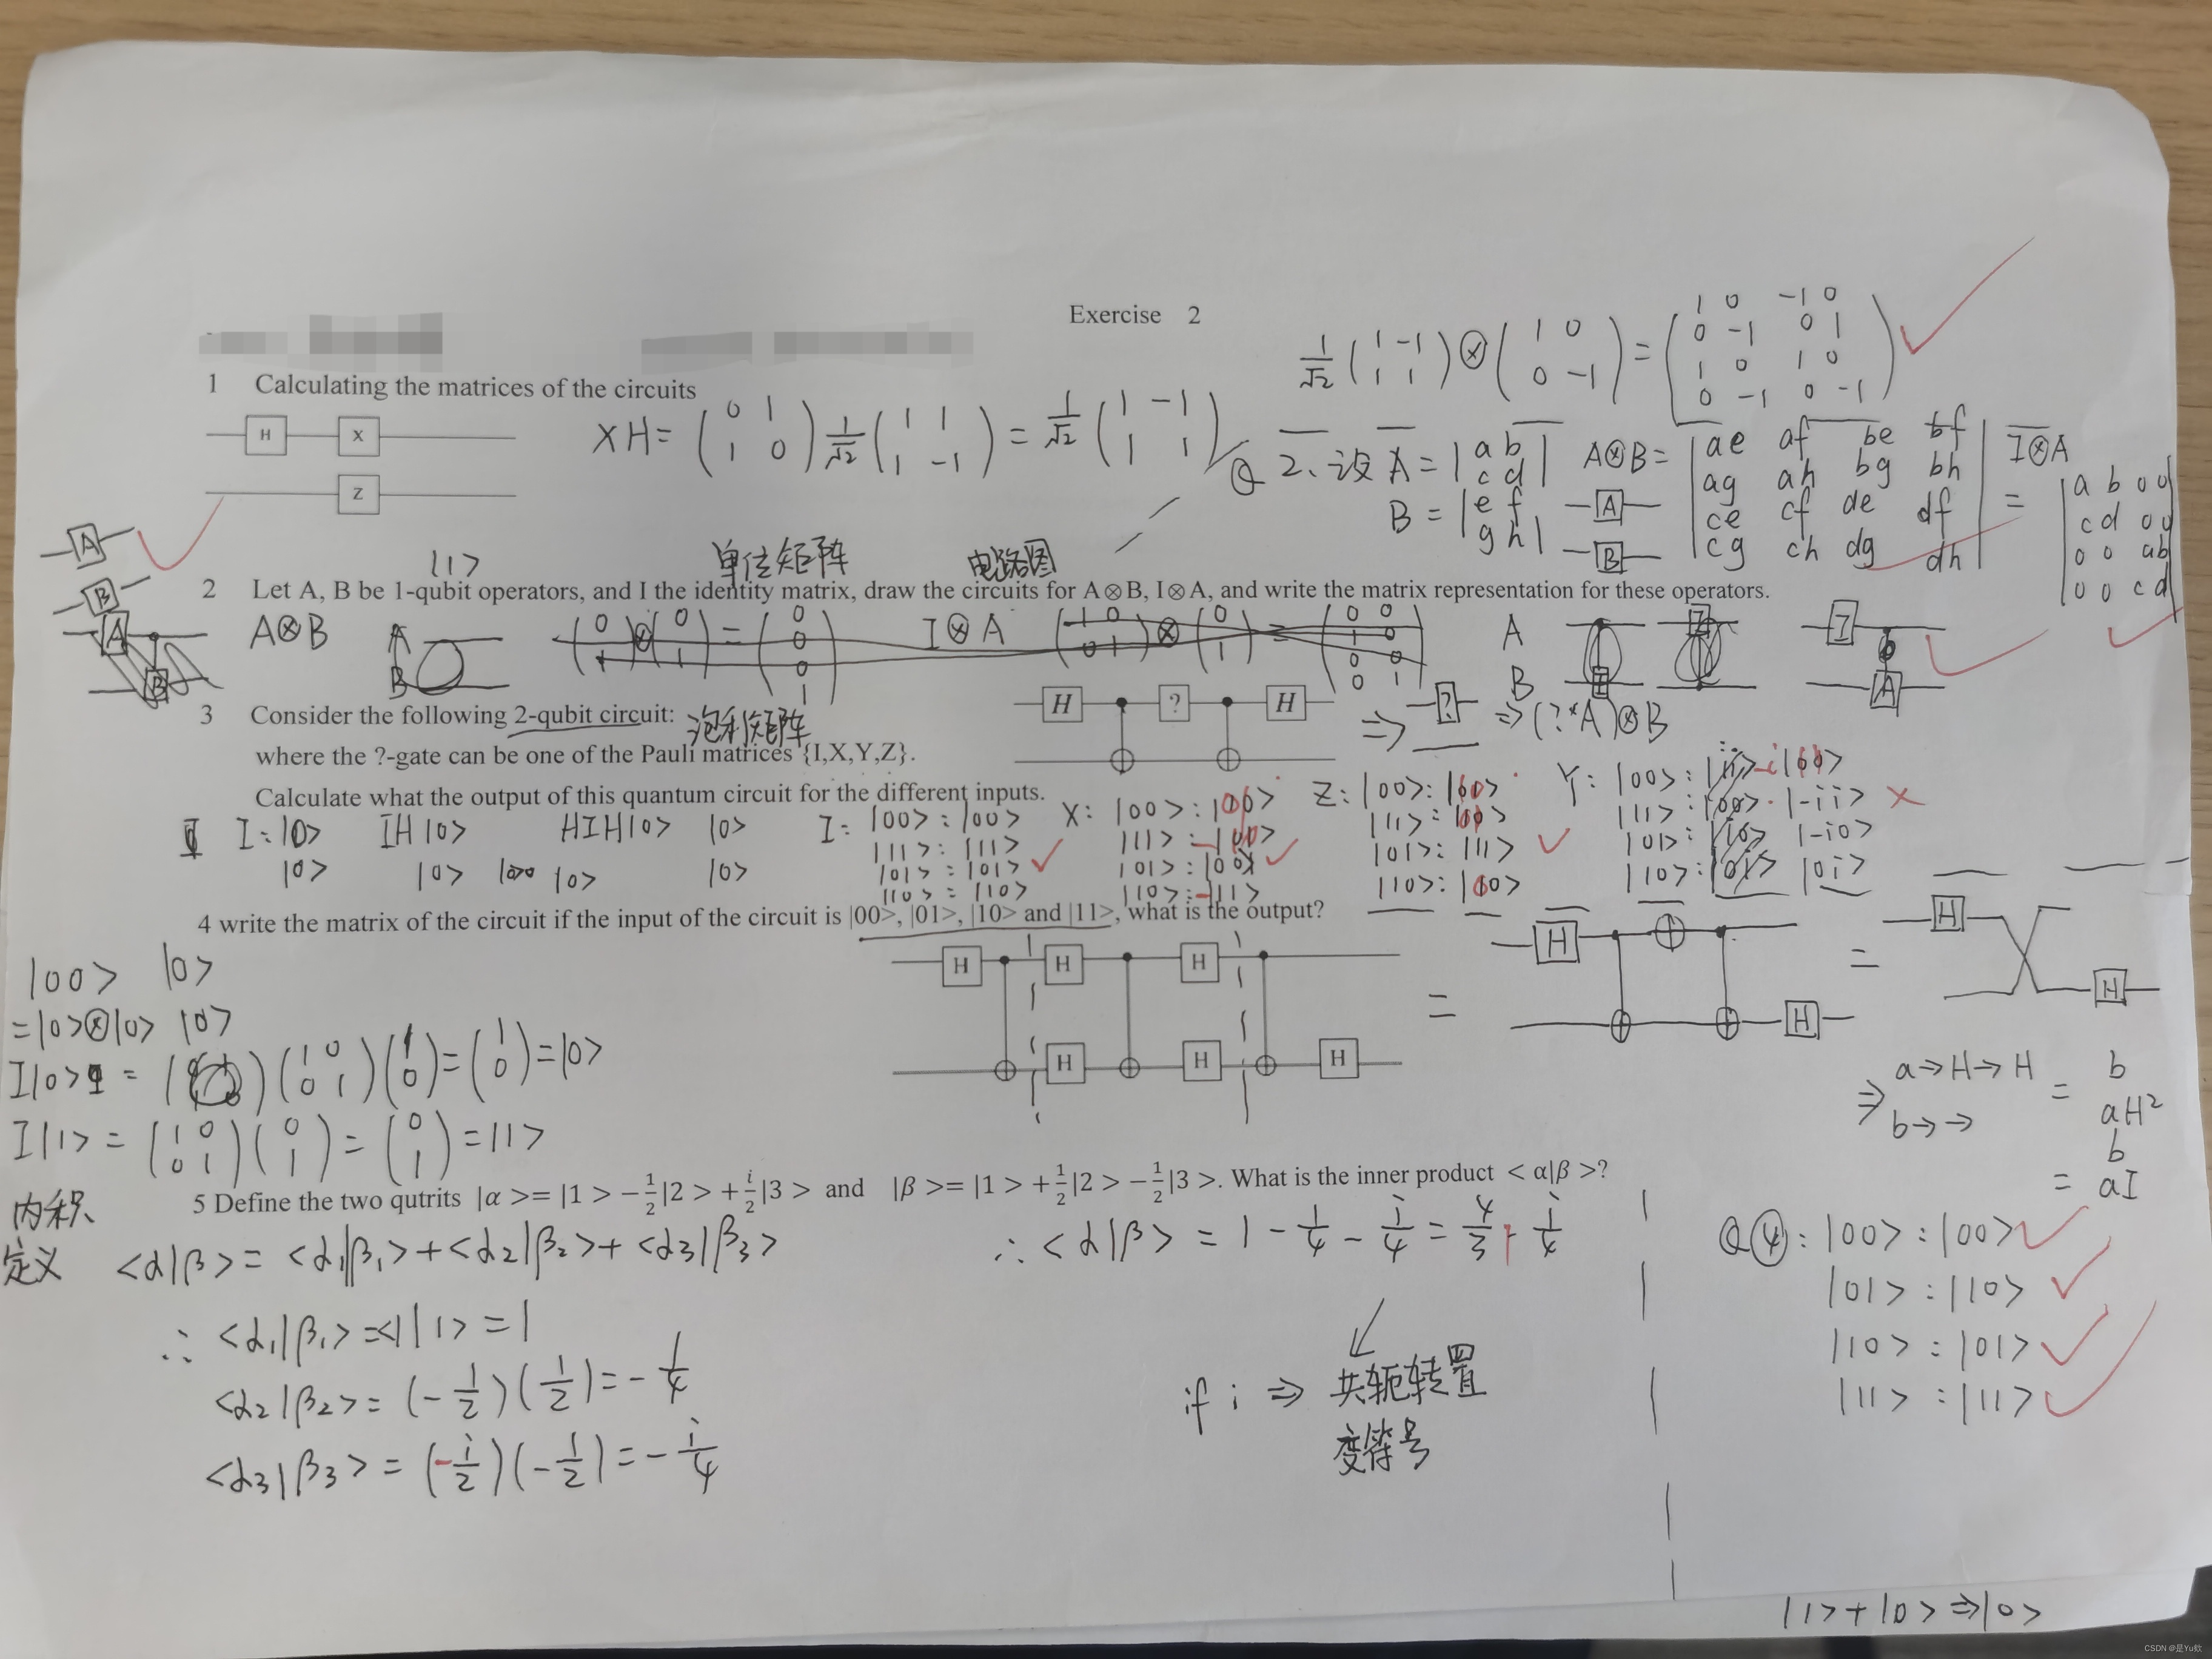 Exercise 2
1 Calculating the matrices of the circuits
H X
Z
XH = (0 1 1 0) 1/√2 (1 1 1 -1) = 1/√2 (1 -1 1 1)
1/√2 (1 -1 1 1) ⊗ (1 0 0 -1) = (1 0 -1 0 0 -1 0 1 1 0 1 0 0 -1 0 -1)
Q 2. 设 A = |a b c d|
B = |e f g h|
A⊗B = |ae af be bf ag ah bg bh ce cf de df cg ch dg dh|
A
B
I⊗A = |a b 0 0 c d 0 0 0 0 a b 0 0 c d|
A
B
|1>
单位矩阵
电路图
2 Let A, B be 1-qubit operators, and I the identity matrix, draw the circuits for A⊗B, I⊗A, and write the matrix representation for these operators.
A⊗B
A
B
I⊗A
A
B
I
A
3 Consider the following 2-qubit circuit:
泡利矩阵
H ? H
⇒ ? ⇒ (?*A)⊗B
where the ?-gate can be one of the Pauli matrices {I,X,Y,Z}.
Calculate what the output of this quantum circuit for the different inputs.
I: |0> IH|0> HIH|0> |0>
|0> |0> |0> |0>
I: |00> : |00>
|11> : |11>
|01> : |01>
|10> = |10>
X: |00> :
|11> :
|01> :
|10> : -|11>
Z: |00> :
|11> :
|01> : |11>
|10> :
Y: |00> :
|11> : |-ii>
|01> : |-i0>
|10> : |0i>
4 write the matrix of the circuit if the input of the circuit is |00>, |01>, |10> and |11>, what is the output?
H H H
H H H
= H H
= H H
|00> |0>
=|0>⊗|0> |0>
I|0> = (1 0 0 1)(1 0) = (1 0) = |0>
I|1> = (1 0 0 1)(0 1) = (0 1) = |1>
⇒ a→H→H = b
b→→ aH²
= b
aI
5 Define the two qutrits |α >= |1 > −1/2|2 > +i/2|3 > and |β >= |1 > +1/2|2 > −1/2|3 >. What is the inner product < α|β >?
内积
定义 <α|β> = <α1|β1> + <α2|β2> + <α3|β3>
∴ <α|β> = 1 - 1/4 - i/4 = 4/3 - i/4
∴ <α1|β1> = <1|1> = 1
<α2|β2> = (-1/2)(1/2) = -1/4
<α3|β3> = (-i/2)(-1/2) = -i/4
if i ⇒ 共轭转置
变符号
Q④: |00> : |00>
|01> : |10>
|10> : |01>
|11> : |11>
|1>+|0>⇒|0>
CSDN @是Yu欸